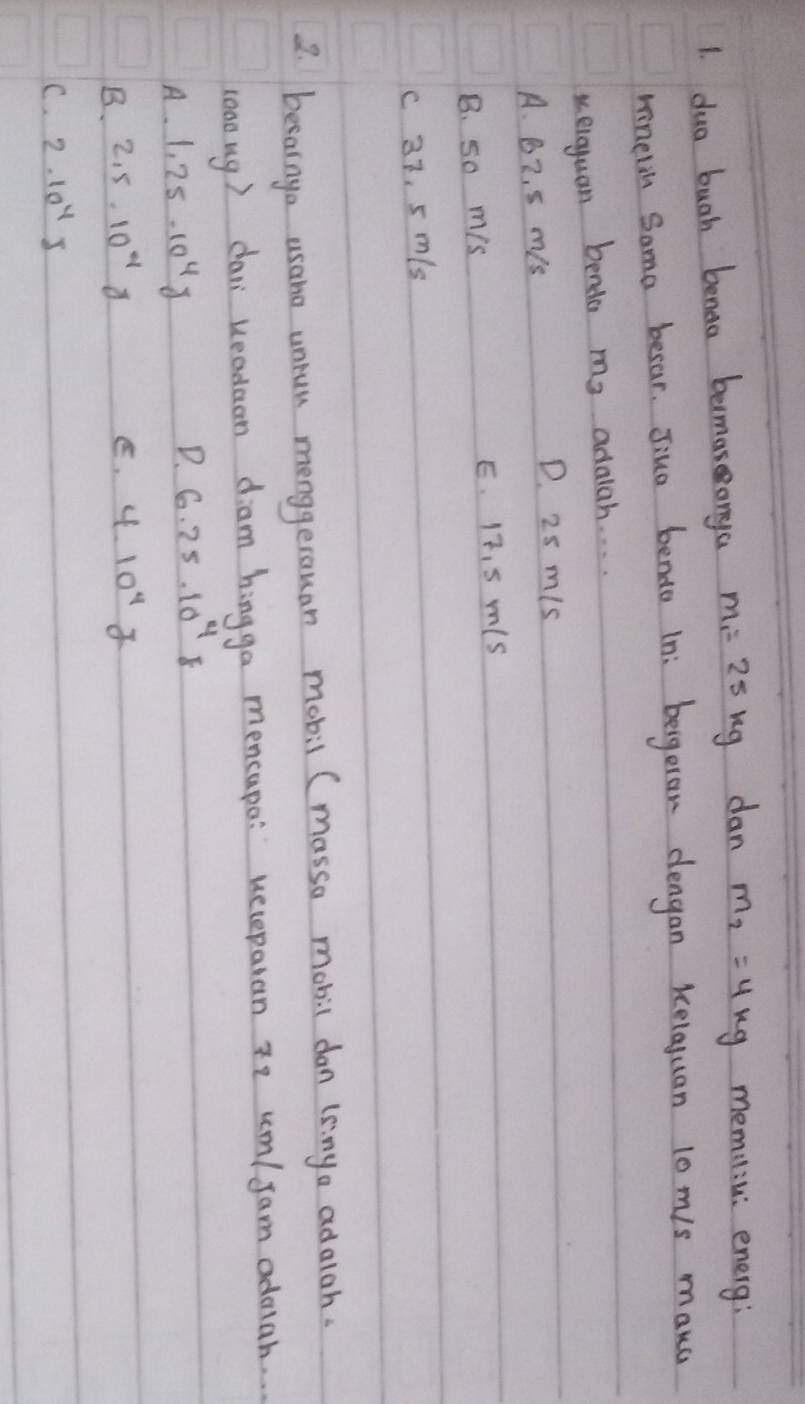 1. dua buah benda bermassanya m₁= 25 kg dan m₂ = 4 kg memiliki energi
kinetik sama besar. Jika benda ini bergerak dengan kelajuan 10 m/s maka
kelajuan benda m₂ adalah....
A. 62,5 m/s D. 25 m/s
B. 50 m/s E. 17,5 m/s
C 37,5 m/s
2. besarnya usaha untuk menggerakan mobil (massa mobil dan isinya adalah
1000 kg) dari keadaan diam hingga mencapai kecepatan 72 km/Jam adalah...
A. 1,25 . 10⁴ J D. 6.25 . 10⁴ J
B. 2,5 . 10⁴ J E. 4 . 10⁴ J
C. 2 . 10⁴ J